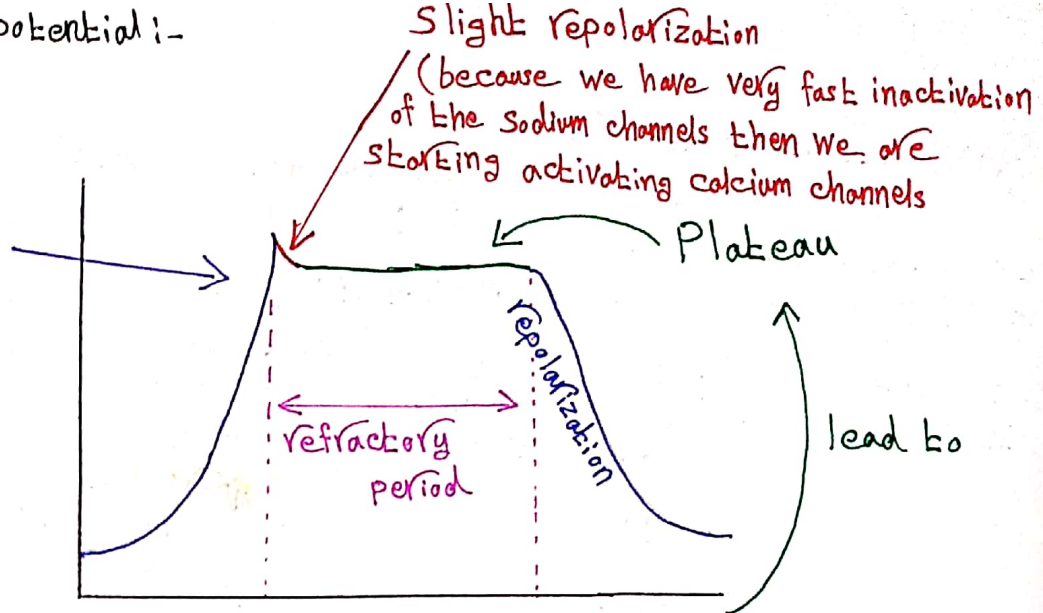 potential :-
Slight repolarization
(because we have very fast inactivation
of the sodium channels then we are
starting activating calcium channels
Plateau
repolarization
refractory
period
lead to